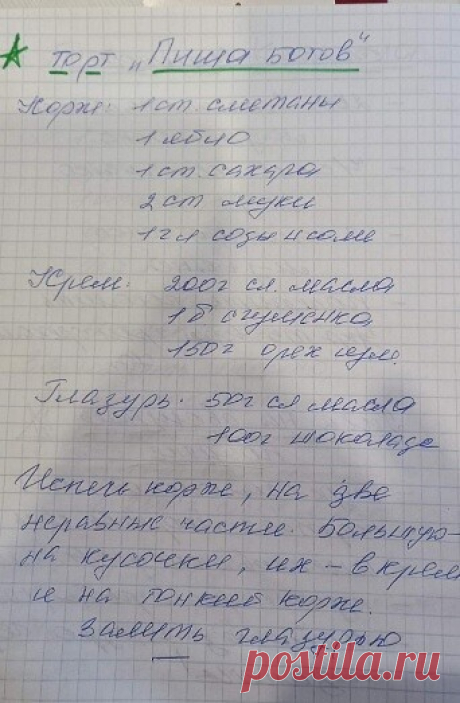 торт „Пища богов"
Корж: 1 ст. сметаны
1 яйцо
1 ст. сахара
2 ст муки
1 ч л соды и соли
Крем: 200г сл. масла
1 б сгущёнка
150г орех изм.
Глазурь. 50г сл масла
100г шоколада
Испечь корж, на две
неравные части. Большую-
на кусочки, их – в крем
и на тонкий корж.
Залить глазурью.
postila.ru